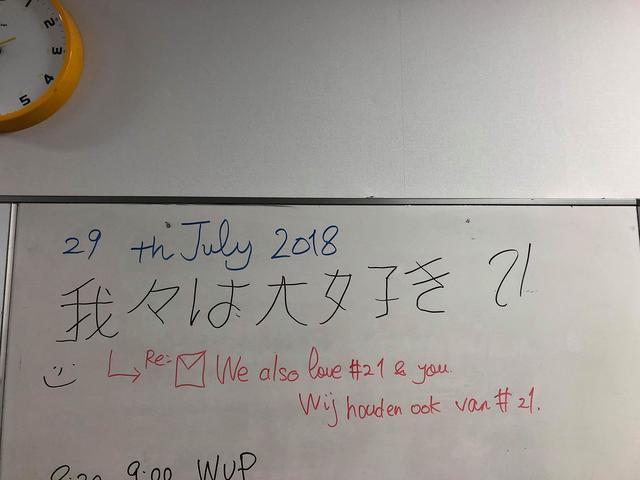 2
3
4
5
29 th July 2018
我々は大好き 21
Re: We also love #21 & you.
Wij houden ook van #21.
9:00 WUP